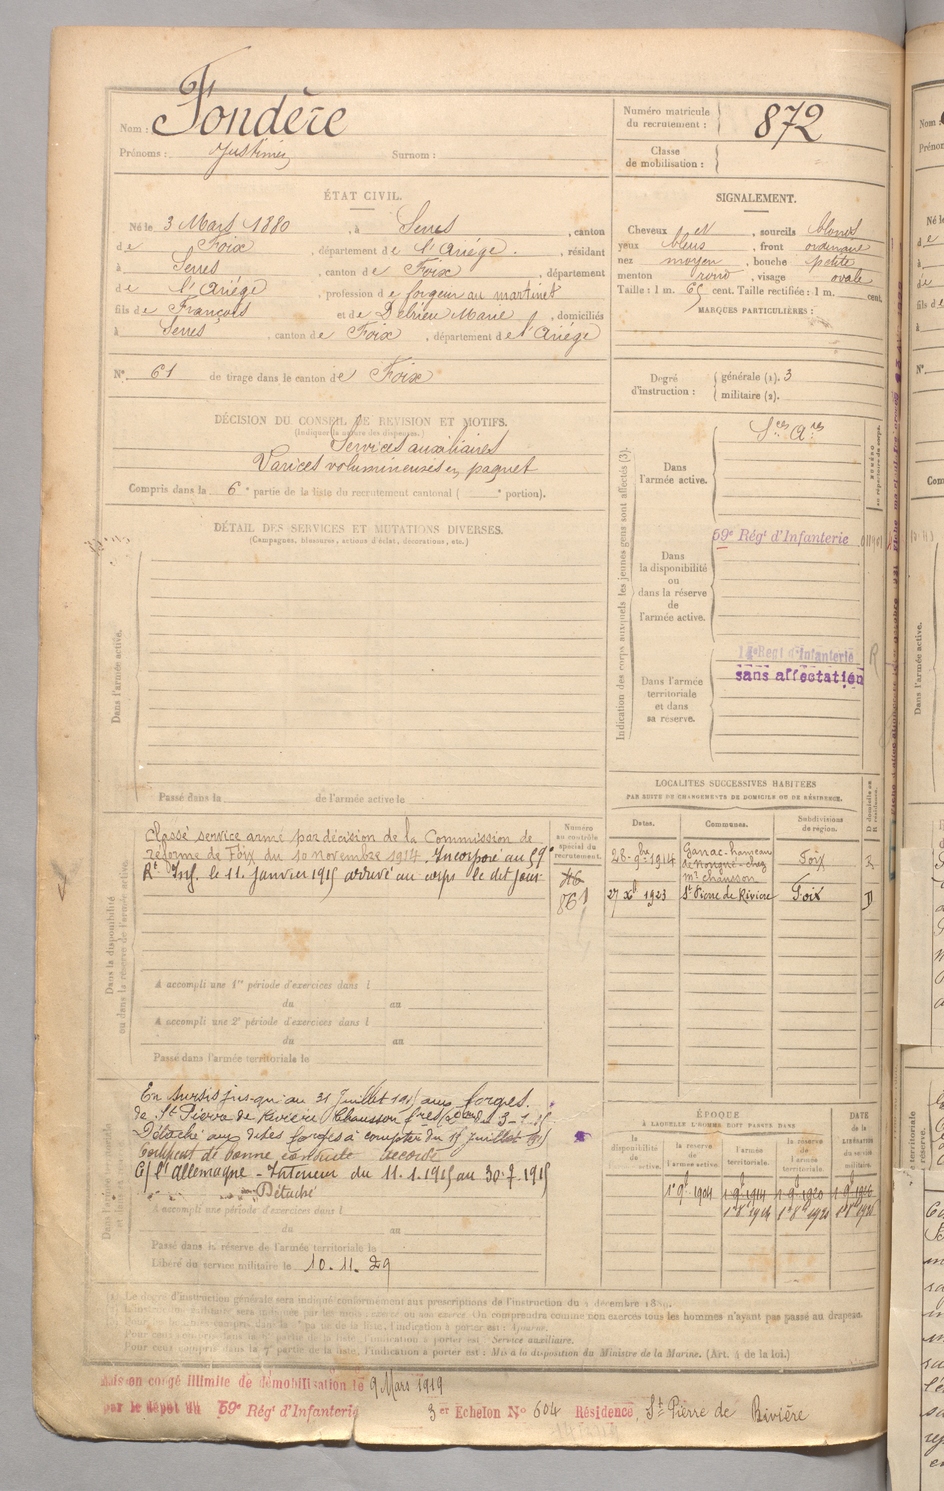 Nom : Fondère
Prénoms : Justinien
Surnom :
Numéro matricule du recrutement : 872
Classe de mobilisation :
ÉTAT CIVIL.
Né le 3 Mars 1880, à Serres, canton
de Foix, département de l'Ariége, résidant
à Serres, canton de Foix, département
de l'Ariége, profession de forgeur au martinet
fils de François et de Delrieu Marie, domiciliés
à Serres, canton de Foix, département de l'Ariége
N° 61 de tirage dans le canton de Foix
SIGNALEMENT.
Cheveux et, sourcils blonds
yeux bleus, front ordinaire
nez moyen, bouche petite
menton rond, visage ovale
Taille : 1 m. 65 cent. Taille rectifiée : 1 m. cent.
MARQUES PARTICULIÈRES :
Degré d'instruction : générale (1). 3
militaire (2).
DÉCISION DU CONSEIL DE REVISION ET MOTIFS.
(Indiquer la nature des dispenses.)
Services auxiliaires
Varices volumineuses en paquet
Compris dans la 6e partie de la liste du recrutement cantonal ( e portion).
DÉTAIL DES SERVICES ET MUTATIONS DIVERSES.
(Campagnes, blessures, actions d'éclat, décorations, etc.)
Dans l'armée active.
Passé dans la de l'armée active le
Indication des corps auxquels les jeunes gens sont affectés (3).
Dans l'armée active. Sces Ares
Dans la disponibilité ou dans la réserve de l'armée active.
59e Régt d'Infanterie
Dans l'armée territoriale et dans sa réserve.
Regt d'Infanterie R
sans affectation
LOCALITÉS SUCCESSIVES HABITÉES
PAR SUITE DE CHANGEMENTS DE DOMICILE OU DE RÉSIDENCE.
Dates. Communes. Subdivisions de région. D domicile ou R résidence.
28-9bre-1914 Ganac-hameau chez Mr Chausson Foix R
27 Xbre 1923 St Pierre de Rivière Foix D
Dans la disponibilité ou dans la réserve de l'armée active.
Numéro au contrôle spécial du recrutement.
861
Classé service armé par décision de la Commission de
réforme de Foix du 10 novembre 1914. Incorporé au 59e
Rt Inf. le 11 janvier 1915 arrivé au corps le dit jour.
A accompli une 1re période d'exercices dans l
du au
A accompli une 2e période d'exercices dans l
du au
Passé dans l'armée territoriale le
En sursis jusqu'au 31 Juillet 1915 aux forges
de St Pierre de Rivière Chausson frères
Détaché aux dites forges à compter du Juillet 1915
Certificat de bonne conduite accordé
C/ l'Allemagne - Intérieur du 11.1.1915 au 30.7.1915
Détaché
A accompli une période d'exercices dans l
du au
Passé dans la réserve de l'armée territoriale le
Libéré du service militaire le 10.11.29
ÉPOQUE
À LAQUELLE L'HOMME DOIT PASSER DANS
la disponibilité de l'armée active. la réserve de l'armée active. l'armée territoriale. la réserve de l'armée territoriale.
DATE de la LIBÉRATION du service militaire.
1er 9bre 1904
(1) Le degré d'instruction générale sera indiqué conformément aux prescriptions de l'instruction du
On comprendra comme non exercés tous les hommes n'ayant pas passé au drapeau.
l'indication à porter est : Ajourné.
Pour ceux compris dans la 6e partie de la liste, l'indication à porter est : Service auxiliaire.
Pour ceux compris dans la 7e partie de la liste, l'indication à porter est : Mis à la disposition du Ministre de la Marine. (Art. 4 de la loi.)
Mis en congé illimité de démobilisation le 9 Mars 1919
par le dépôt du 59e Régt d'Infanterie 3er Echelon N° 604 Résidence, St Pierre de Rivière